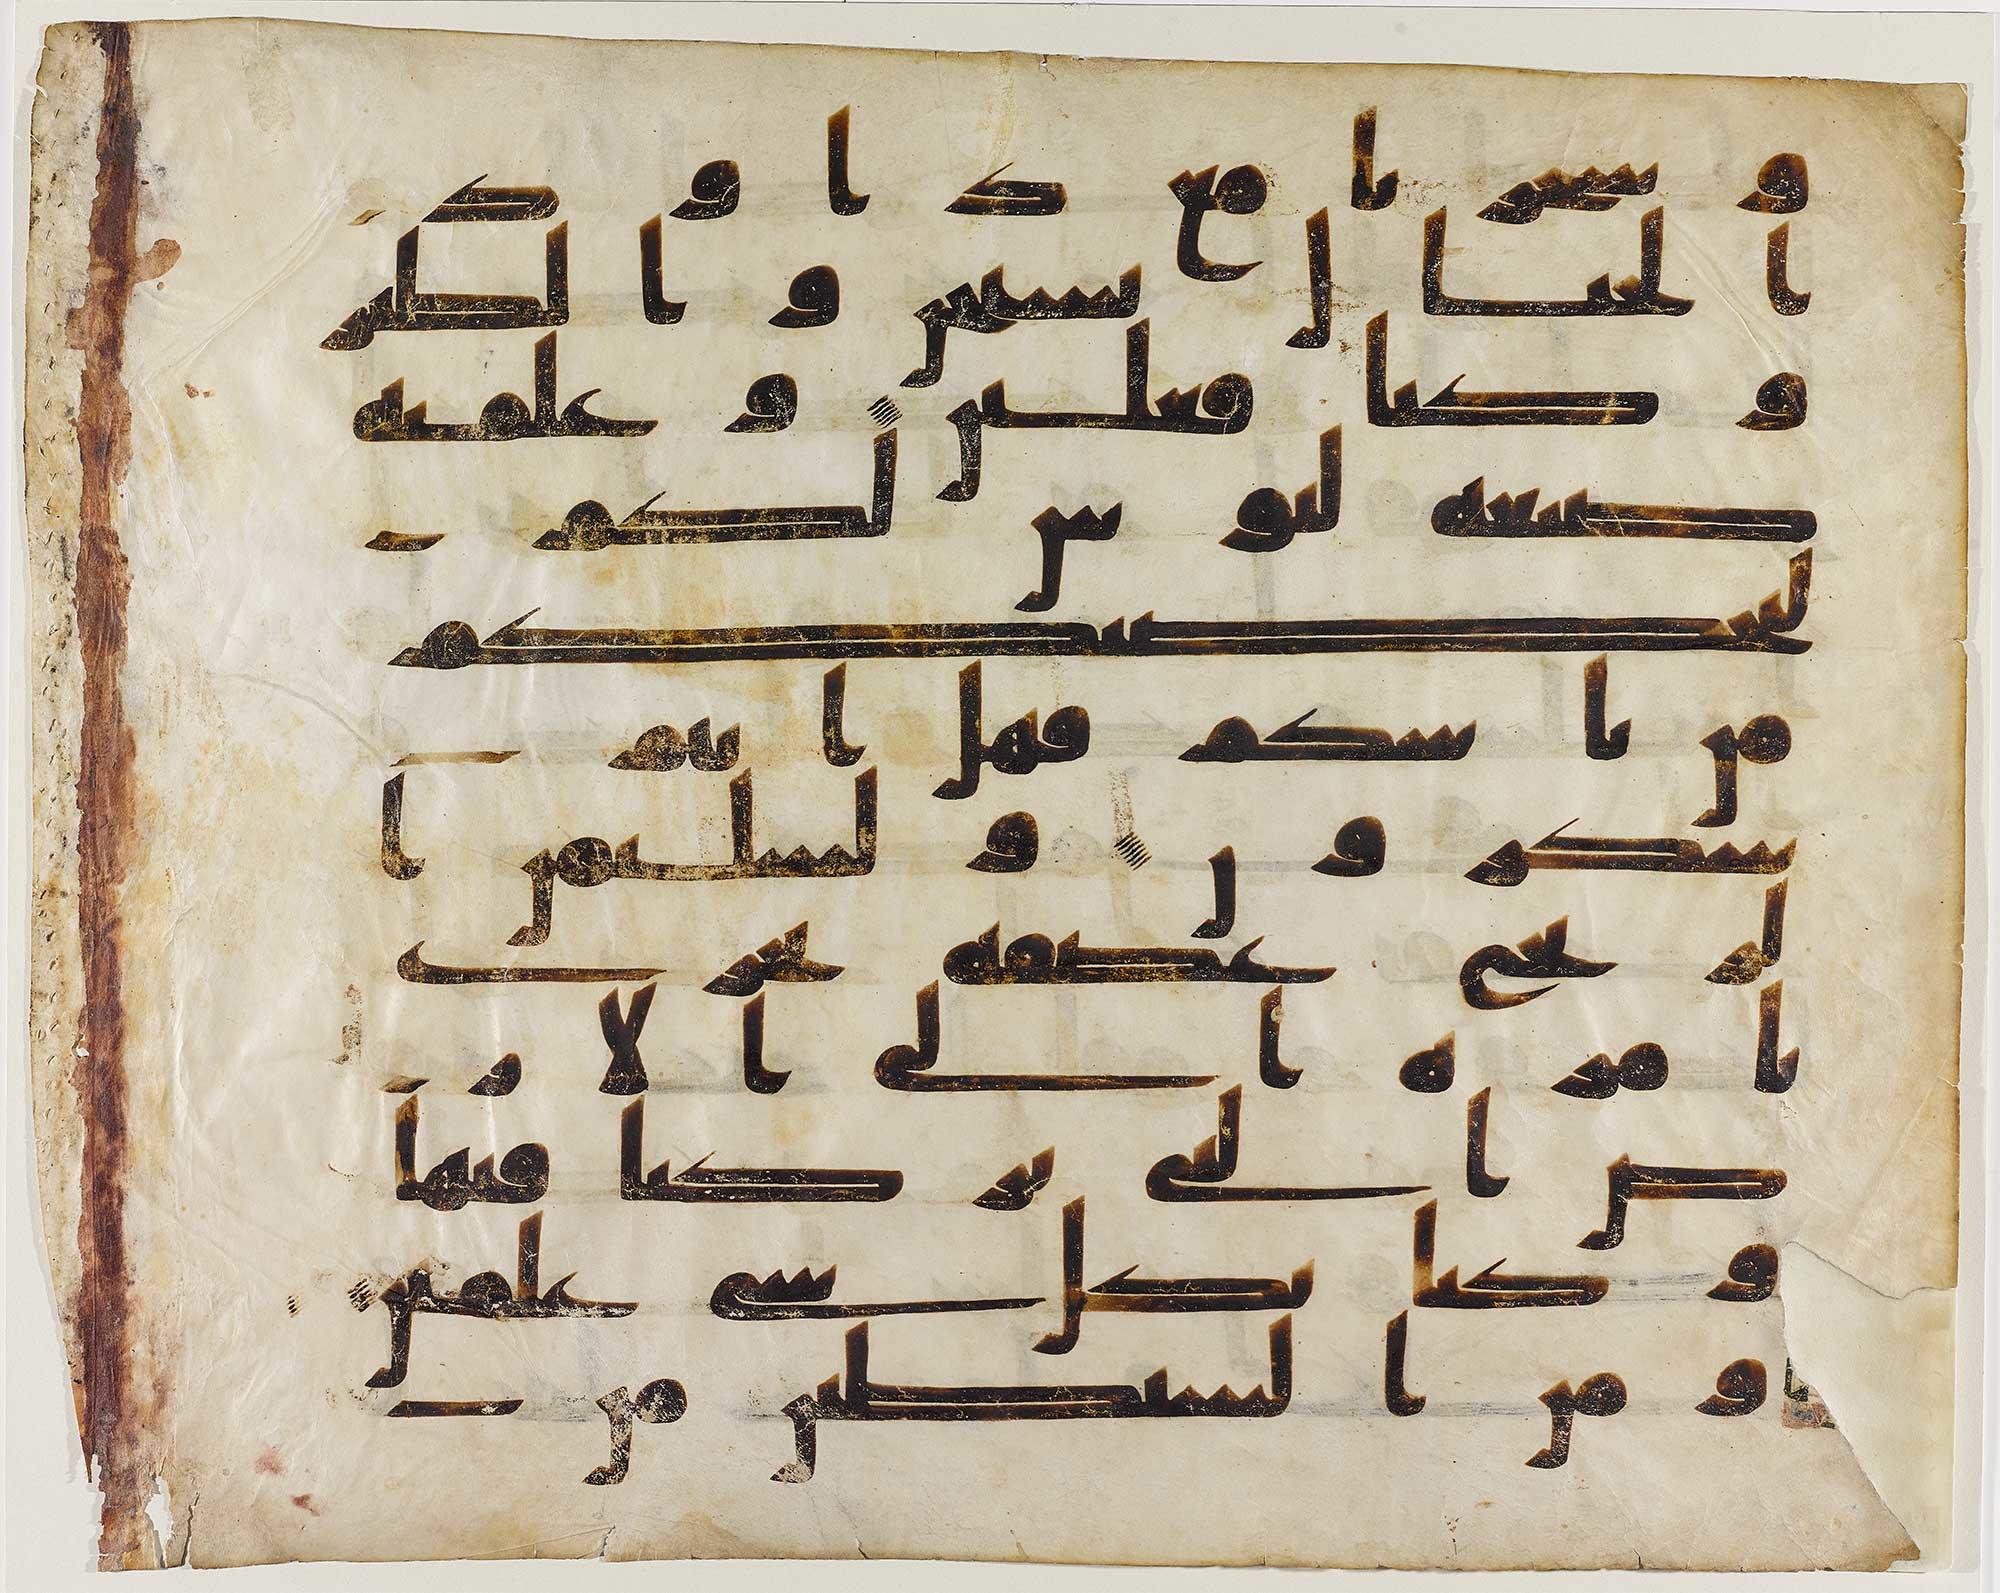 و سخرنا مع داود
الجبال يسبحن و الطير
و كنا فعلين و علمنه
صنعة لبوس لكم
لتحصنكم
من باسكم فهل انتم
شكرون و لسليمن ا
لريح عصفة تجري
بامره الى الار
ض التي بركنا فيها
و كنا بكل شي علمين
و من الشيطين من